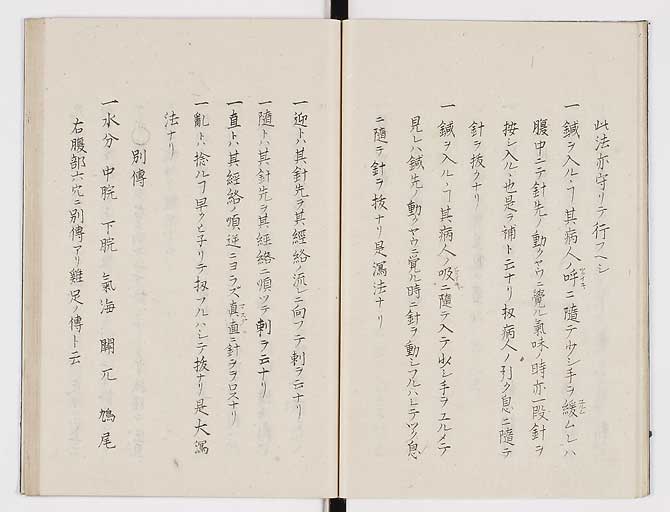 此法亦守リテ行フヘシ
一鍼ヲ入ルヽヿ其病人ノ呼ニ隨テ少シ手ヲ緩ムレハ
腹中ニテ針先ノ動クヤウニ覺ル氣味ノ時亦一段針ヲ
按シ入ルヽ也是ヲ補ト云ナリ扨病人ノ引ク息ニ隨テ
針ヲ拔クナリ
一鍼ヲ入ルヽヿ其病人ノ吸ニ隨テ入テ少シ手ヲユルメテ
見レハ鍼先ノ動クヤウニ覺ル時ニ針ヲ動シフルハシテツク息
ニ隨テ針ヲ拔ナリ是瀉法ナリ
一迎トハ其針先ヲ其經絡ノ流レニ向フテ刺ヲ云ナリ
一隨トハ其針先ヲ其經絡ニ順ツテ刺ヲ云ナリ
一直トハ其經絡ノ順逆ニヨラズ直直ニ針ヲヲロスナリ
一亂トハ捻ルヿ早クヒ子リテ扨フルハシテ拔ナリ是大瀉
法ナリ
〇別傳
一水分 中脘 下脘 氣海 關元 鳩尾
右腹部六穴ニ別傳アリ雞足ノ傳ト云